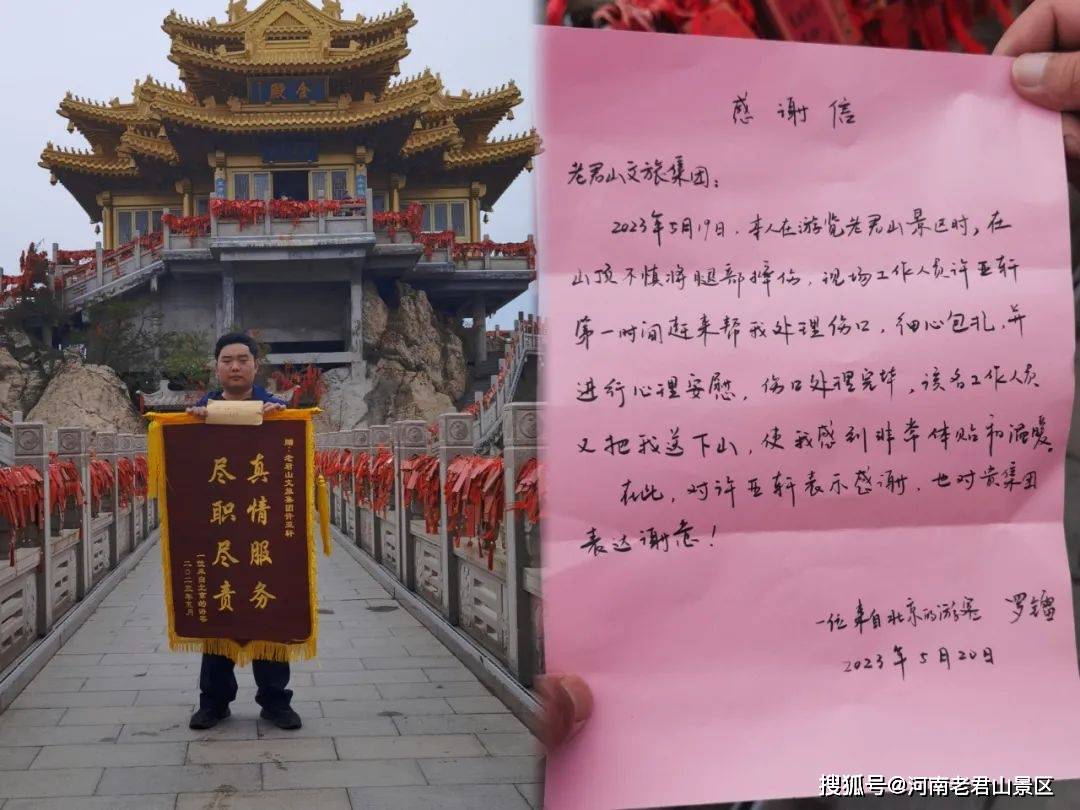 金殿
赠：老君山文旅集团许亚轩
真情服务
尽职尽责
一位来自北京的游客
二〇二三年五月
感谢信
老君山文旅集团：
2023年5月19日，本人在游览老君山景区时，在
山顶不慎将腿部摔伤，现场工作人员许亚轩
第一时间赶来帮我处理伤口，细心包扎，并
进行心理安慰，伤口处理完毕，该名工作人员
又把我送下山，使我感到非常体贴和温暖。
在此，对许亚轩表示感谢，也对贵集团
表达谢意！
一位来自北京的游客 罗
2023年5月20日
搜狐号@河南老君山景区